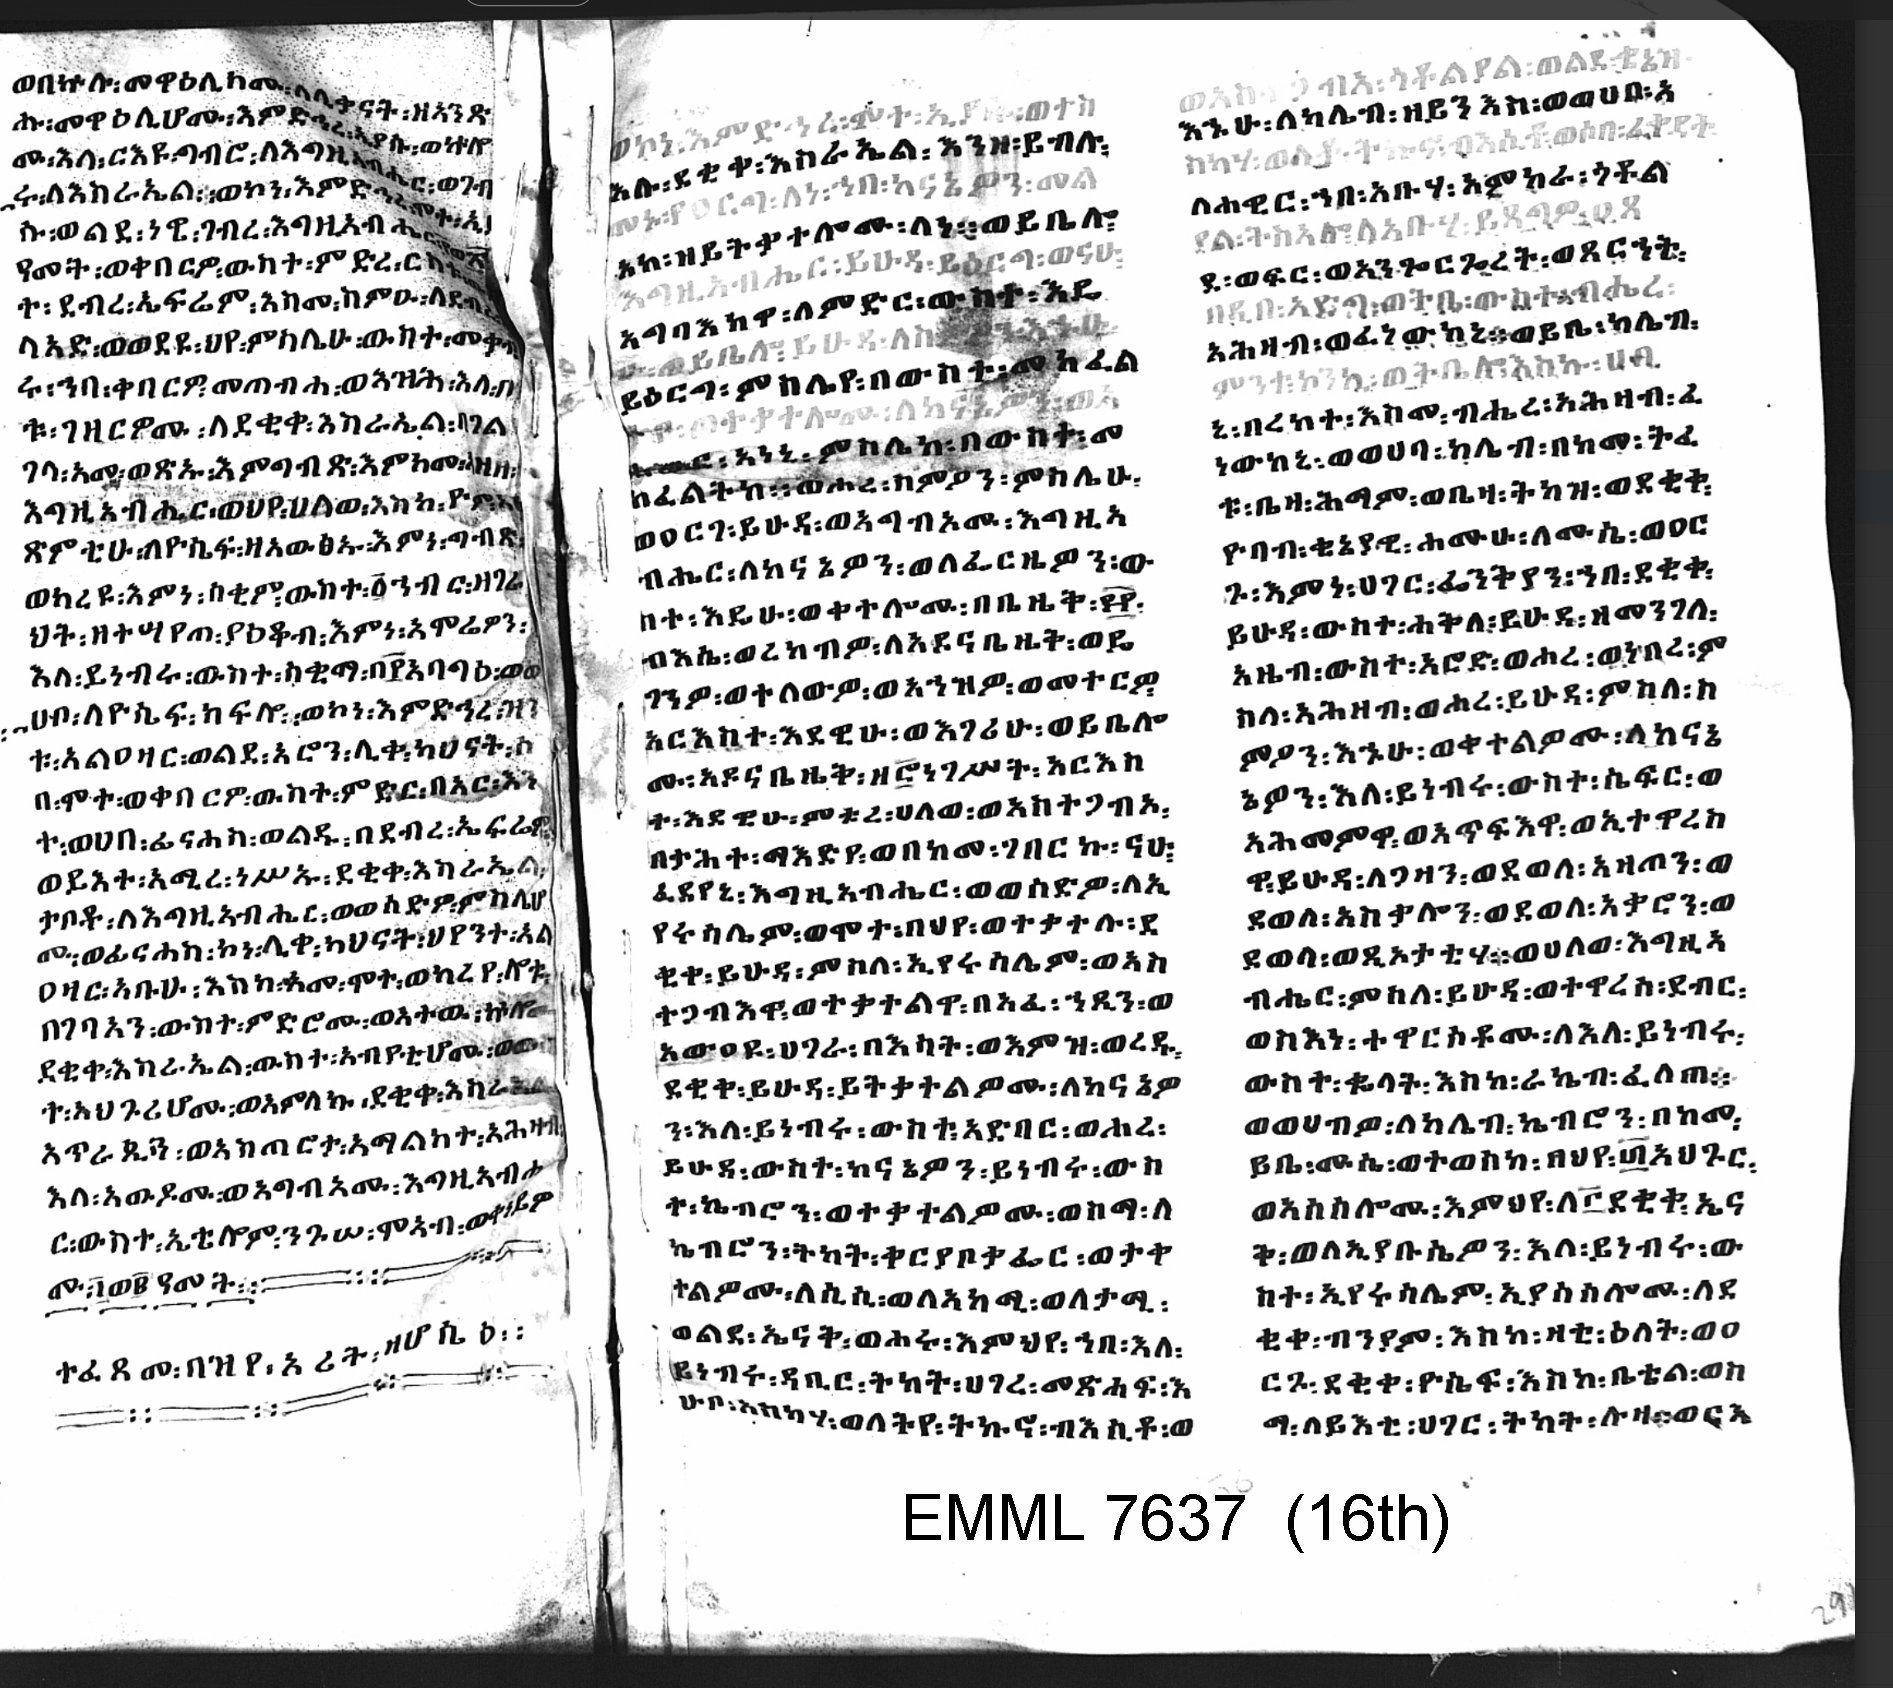 ወበኵሉ፡መዋዕሊሆሙ፡ለሊቃናት፡ዘአንኆ
ሙ፡እለ፡ርእዩ፡ግብሮ፡ለእግዚአብሔር፡ወገብ
ሩ፡ለእስራኤል።ወኮነ፡እምድኅረ
ኩ፡ወልደ፡ነዌ፡ገብረ፡እግዚአብሔር
ዓመት፡ወቀበርዎ፡ውስተ፡ምድረ፡ርስቱ
ት፡ደብረ፡ኤፍሬም፡እስመ፡ከምዑ፡ለደብረ
ላአድ፡ወወደዩ፡ህየ፡ምስሌሁ፡ውስተ፡መቃብ
ሩ፡ኀበ፡ቀበርዎ፡መጠብሐ፡ወእዝኅ፡እለ፡በ
ቱ፡ገዘርዎሙ፡ለደቂቀ፡እስራኤል፡በገል
ገላ፡አመ፡ወጽኡ፡እምግብጽ፡እምከመ፡አዘዘ
እግዚአብሔር፡ወህየ፡ሀለወ፡እስከ፡ዮም
ጽምቲሁ፡ለዮሴፍ፡ዘአውፅኡ፡እምነ፡ግብጽ
ወከረዩ፡እምነ፡ሰቂሞ፡ውስተ፡፩ኀብር፡ዘገራ
ህት፡ዘተሣየጠ፡ያዕቆብ፡እምነ፡አሞሬዎን፡
እለ፡ይነብሩ፡ውስተ፡ሰቂማ፡በ፻አባግዕ፡ወወ
ሀቦ፡ለዮሴፍ፡ከፍሎ፡ወኮነ፡እምድኅረ፡ዝን
ቱ፡አልዐዛር፡ወልደ፡አሮን፡ሊቀ፡ካህናት
በ፡ሞተ፡ወቀበርዎ፡ውስተ፡ምድር፡በአር፡እን
ተ፡ወሀበ፡ፊናሐስ፡ወልዱ፡በደብረ፡ኤፍሬም
ወይእተ፡አሚረ፡ነሥኡ፡ደቂቀ፡እስራኤል፡
ታቦቶ፡ለእግዚአብሔር፡ወወሰድዎ፡ምስሌሆ
ሙ፡ወፊናሐስ፡ኮነ፡ሊቀ፡ካህናት፡ህየንተ፡አል
ዐዛር፡አቡሁ፡እስከ፡አመ፡ሞተ፡ወከረየ፡ሎቱ፡
በገባአን፡ውስተ፡ምድሮሙ፡ወአተዉ፡ኵሎሙ
ደቂቀ፡እስራኤል፡ውስተ፡አብያቲሆሙ፡ወውስ
ተ፡አህጉሪሆሙ፡ወአምለኩ፡ደቂቀ፡እስራኤል
አጥራጺጓ፡ወአስጠሮታ፡አማልክተ፡አሕዛብ
እለ፡አውዶሙ፡ወአግብአሙ፡እግዚአብሔ
ር፡ውስተ፡ኢቲሎም፡ንጉሠ፡ሞአብ፡ወቀነይዎ
ሙ፡፲ወ፰ዓመት።
ተፈጸመ፡በዝየ፡አሪት፡ዘሆሴዕ።
ወኮነ፡እምድኅረ፡ሞተ፡ኢያሱ፡ወተስ
አሉ፡ደቂቀ፡እስራኤል፡እንዘ፡ይብሉ፡
መኑ፡የዐርግ፡ለነ፡ኀበ፡ከናኔዎን፡መል
አከ፡ዝይትቃተሎሙ፡ለነ።ወይቤሎ
እግዚአብሔር፡ይሁዳ፡ይዕርግ፡ወናሁ፡
አግባእክዋ፡ለምድር፡ውስተ፡እዴ
ሁ፡ወይቤሎ፡ይሁዳ፡ለስምዖን፡እኁሁ፡
ይዕርግ፡ምስሌየ፡በውስተ፡መክፈል
ትየ፡ወተቃተሎሙ፡ለከናኔዎን፡ወአ
አነኒ፡ምስሌከ፡በውስተ፡መ
ክፈልትከ።ወሖረ፡ስምዖን፡ምስሌሁ፡
ወዐርገ፡ይሁዳ፡ወአግብአሙ፡እግዚአ
ብሔር፡ለከናኔዎን፡ወለፌርዜዎን፡ው
ስተ፡እዴሁ፡ወቀተሎሙ፡በቤዜቅ፡፻፻፡
ብእሴ፡ወረከብዎ፡ለአዶናቤዜቅ፡ወዴ
ገንዎ፡ወተለውዎ፡ወአኀዝዎ፡ወመተርዎ
አርእስተ፡እደዊሁ፡ወእገሪሁ፡ወይቤሎ
ሙ፡አዶናቤዜቅ፡ዘ፸ነገሥት፡አርእስ
ተ፡እደዊሁ፡ምቱረ፡ሀለወ፡ወአስተጋብአ፡
በታሕተ፡ማእድየ፡ወበከመ፡ገበርኩ፡ናሁ፡
ፈደየኒ፡እግዚአብሔር፡ወወሰድዎ፡ለኢ
የሩሳሌም፡ወሞተ፡በህየ፡ወተቃተሉ፡ደ
ቂቀ፡ይሁዳ፡ምስለ፡ኢየሩሳሌም፡ወአስ
ተጋብእዋ፡ወተቃተልዋ፡በአፈ፡ኀፂን፡ወ
አውዐዩ፡ሀገራ፡በእሳት፡ወእምዝ፡ወረዱ፡
ደቂቅ፡ይሁዳ፡ይትቃተልዎሙ፡ለከናኔዎ
ን፡እለ፡ይነብሩ፡ውስተ፡አድበር፡ወሖረ፡
ይሁዳ፡ውስተ፡ከናኔዎን፡ይነብሩ፡ውስ
ተ፡ኬብሮን፡ወተቃተልዎሙ፡ወስማ፡ለ
ኬብሮን፡ትካት፡ቅርያቦታፌር፡ወታቀ
ተልዎሙ፡ለሴሲ፡ወለአኪሚ፡ወለታሚ፡
ወልደ፡ኤናቅ፡ወሖሩ፡እምህየ፡ኀበ፡እለ፡
ይነብሩ፡ዳቢር፡ትካት፡ሀገረ፡መጽሐፍ፡እ
ሁቦ፡አክሳሃ፡ወለትየ፡ትኩኖ፡ብእሲቶ፡ወ
ጎቶልያል፡ወልደ፡ቄኔዝ
እኁሁ፡ለካሌብ፡ዘይንእስ፡ወወሀቦ፡አ
ክሳሃ፡ወለቶ፡ትኩኖ፡ብእሲቶ፡ወሶበ፡ፈቀደት
ለሐዊር፡ኀበ፡አቡሃ፡አምከራ፡ጎቶል
ያል፡ትስአሎ፡ለአቡሃ፡ይጸግዎ፡ዐጸ
ደ፡ወፍር፡ወአንጐርጐረት፡ወጸርኀት፡
በዲበ፡አድግ፡ወትቤ፡ውስተ፡ብሔረ፡
አሕዛብ፡ወፈነውከኒ።ወይቤ፡ካሌብ፡
ምንተ፡ኮንኪ፡ወትቤሎ፡አክሳ፡ሀብ
ኒ፡በረከተ፡እስመ፡ብሔረ፡አሕዛብ፡ፈ
ነውከኒ፡ወወሀባ፡ካሌብ፡በከመ፡ትፈ
ቱ፡ቤዛ፡ሕማም፡ወቤዛ፡ትካዝ፡ወደቂቀ፡
ዮባብ፡ቄኔያዊ፡ሐሙሁ፡ለሙሴ፡ወዐር
ጉ፡እምነ፡ሀገር፡ፌንቅያን፡ኀበ፡ደቂቀ፡
ይሁዳ፡ውስተ፡ሐቅለ፡ይሁዳ፡ዘመንገለ፡
አዜብ፡ውስተ፡አሮድ፡ወሖረ፡ወነበረ፡ም
ስለ፡አሕዛብ፡ወሖረ፡ይሁዳ፡ምስለ፡ስ
ምዖን፡እኁሁ፡ወቀተልዎሙ፡ለከናኔ
ኔዎን፡እለ፡ይነብሩ፡ውስተ፡ሴፍር፡ወ
አሕመምዋ፡ወአጥፍእዋ፡ወኢተዋረስ
ዋ፡ይሁዳ፡ለጋዛን፡ወደወለ፡አዛጦን፡ወ
ደወለ፡አስቃሎን፡ወደወለ፡አቃሮን፡ወ
ደወላ፡ወዲአታቲሃ።ወሀለወ፡እግዚአ
ብሔር፡ምስለ፡ይሁዳ፡ወተዋረሰ፡ደብር፡
ወስእነ፡ተዋርሶቶሙ፡ለእለ፡ይነብሩ፡
ውስተ፡ቈላት፡እስከ፡ራኬብ፡ፈለጠ።
ወወሀብዎ፡ለካሌብ፡ኬብሮን፡በከመ፡
ይቤ፡ሙሴ፡ወተወስከ፡በህየ፡፫አህጉር፡
ወአሰስሎሙ፡እምህየ፡ለ፫ደቂቀ፡ኤና
ቅ፡ወለኢያቡሴዎን፡እለ፡ይነብሩ፡ው
ስተ፡ኢየሩሳሌም፡ኢያሰስሎሙ፡ለደ
ቂቀ፡ብንያም፡እስከ፡ዛቲ፡ዕለት፡ወዐ
ርጉ፡ደቂቀ፡ዮሴፍ፡እስከ፡ቤቴል፡ወስ
ማ፡ለይእቲ፡ሀገር፡ትካት፡ሉዛ።ወርእ
EMML 7637 (16th)